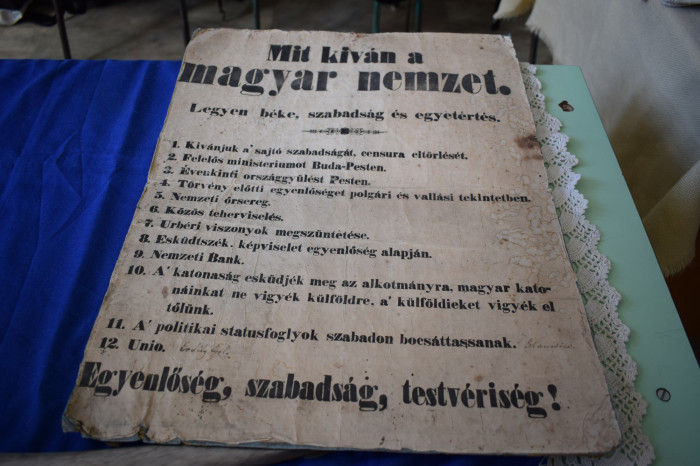 Mit kiván a
magyar nemzet.
Legyen béke, szabadság és egyetértés.
1. Kivánjuk a' sajtó szabadságát, censura eltörlését.
2. Felelős ministeriumot Buda-Pesten.
3. Évenkinti országgyülést Pesten.
4. Törvény előtti egyenlőséget polgári és vallási tekintetben.
5. Nemzeti őrsereg.
6. Közös teherviselés.
7. Urbéri viszonyok megszüntetése.
8. Esküdtszék, képviselet egyenlőség alapján.
9. Nemzeti Bank.
10. A' katonaság esküdjék meg az alkotmányra, magyar kato-
náinkat ne vigyék külföldre, a' külföldieket vigyék el
tőlünk.
11. A' politikai statusfoglyok szabadon bocsáttassanak.
12. Unio.
Egyenlőség, szabadság, testvériség!